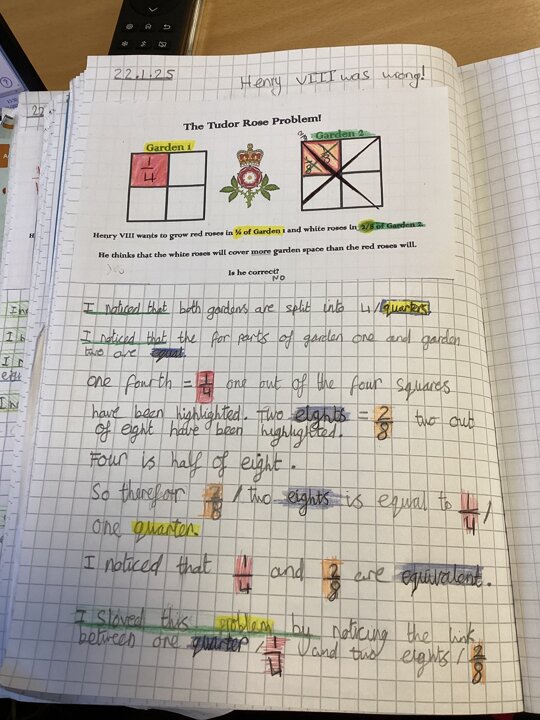 22.1.25
Henry VIII was wrong!
The Tudor Rose Problem!
Garden 1
Garden 2
1/4
Henry VIII wants to grow red roses in ¼ of Garden 1 and white roses in 2/8 of Garden 2.
He thinks that the white roses will cover more garden space than the red roses will.
Is he correct?
NO
I noticed that both gardens are split into 4/quarters.
I noticed that the for parts of garden one and garden
two are equal.
one fourth = 1/4 one out of the four squares
have been highlighted. Two eights = 2/8 two out
of eight have been highlighted.
Four is half of eight.
So therefor 2/8 / two eights is equal to 1/4 /
one quarter.
I noticed that 1/4 and 2/8 are equivalent.
I sloved this problem by noticing the link
between one quarter / 1/4 and two eights / 2/8